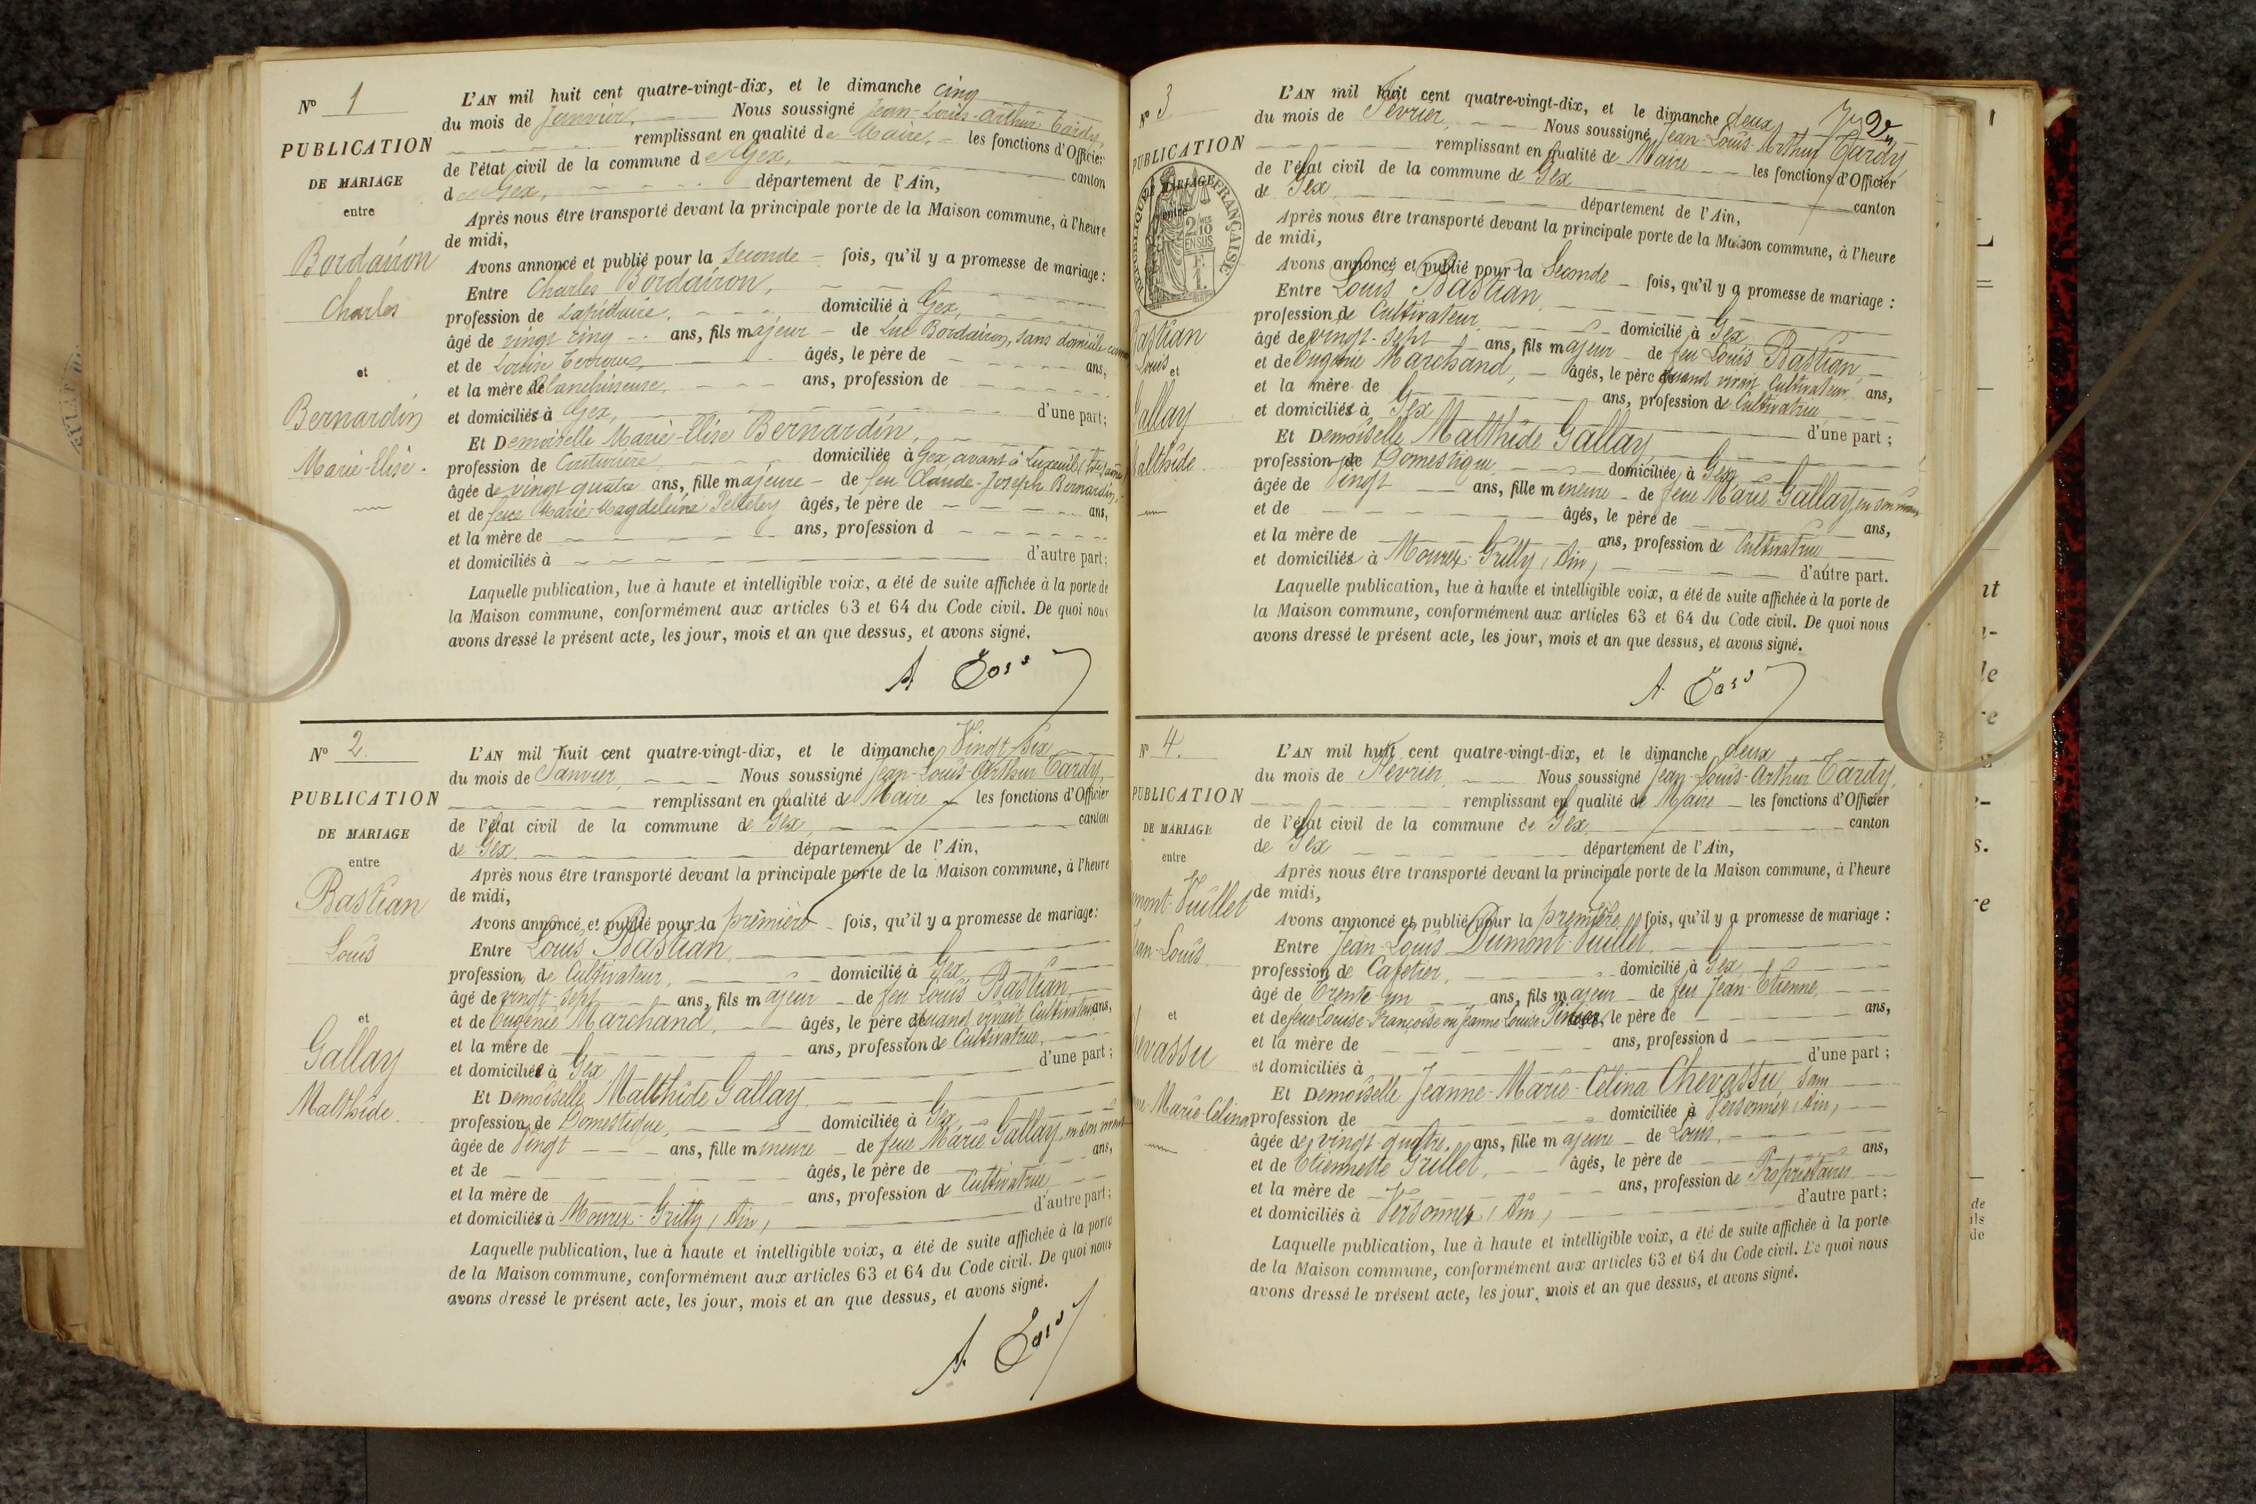 N° 1
PUBLICATION
DE MARIAGE
entre
Bordairon
Charles
et
Bernardin
Marie-Elise.
L'AN mil huit cent quatre-vingt-dix, et le dimanche cinq
du mois de Janvier. Nous soussigné Jean-Louis-Arthur Tardy,
remplissant en qualité de Maire, les fonctions d'Officier
de l'état civil de la commune de Gex, canton
de Gex, département de l'Ain,
Après nous être transporté devant la principale porte de la Maison commune, à l'heure
de midi,
Avons annoncé et publié pour la Seconde fois, qu'il y a promesse de mariage :
Entre Charles Bordairon,
profession de Lapidaire, domicilié à Gex,
âgé de vingt cinq ans, fils majeur de Luc Bordairon, sans domicile connu
et de Louise âgés, le père de ans,
et la mère de Blanchisseuse, ans, profession de
et domiciliés à Gex, d'une part;
Et Demoiselle Marie-Elise Bernardin,
profession de Couturière domiciliée à Gex, avant à Luxeuil (Hte Saône)
âgée de vingt quatre ans, fille majeure de feu Claude-Joseph Bernardin,
et de feue Marie-Magdeleine âgés, le père de ans,
et la mère de ans, profession d
et domiciliés à d'autre part;
Laquelle publication, lue à haute et intelligible voix, a été de suite affichée à la porte de
la Maison commune, conformément aux articles 63 et 64 du Code civil. De quoi nous
avons dressé le présent acte, les jour, mois et an que dessus, et avons signé.
A Tardy
N° 2.
PUBLICATION
DE MARIAGE
entre
Bastian
Louis
et
Gallay
Malthide.
L'AN mil huit cent quatre-vingt-dix, et le dimanche Vingt Six
du mois de Janvier, Nous soussigné Jean-Louis-Arthur Tardy,
remplissant en qualité de Maire les fonctions d'Officier
de l'état civil de la commune de Gex, canton
de Gex. département de l'Ain,
Après nous être transporté devant la principale porte de la Maison commune, à l'heure
de midi,
Avons annoncé et publié pour la première fois, qu'il y a promesse de mariage:
Entre Louis Bastian,
profession de Cultivateur, domicilié à Gex,
âgé de vingt-sept ans, fils majeur de feu Louis Bastian
et de Eugénie Marchand, âgés, le père de quand vivait Cultivateur, ans,
et la mère de ans, profession de Cultivatrice,
et domiciliés à Gex d'une part ;
Et Demoiselle Malthide Gallay
profession de Domestique, domiciliée à Gex
âgée de Vingt ans, fille mineure de feue Marie Gallay, en son vivant
et de âgés, le père de ans,
et la mère de ans, profession de Cultivatrice
et domiciliés à Mourex-Grilly (Ain) d'autre part;
Laquelle publication, lue à haute et intelligible voix, a été de suite affichée à la porte
de la Maison commune, conformément aux articles 63 et 64 du Code civil. De quoi nous
avons dressé le présent acte, les jour, mois et an que dessus, et avons signé.
A. Tardy
N° 3
PUBLICATION
DE MARIAGE
entre
RÉPUBLIQUE FRANÇAISE
2/10 EN SUS
F. 1.
Bastian
Louis et
Gallay
Malthide.
2
L'AN mil huit cent quatre-vingt-dix, et le dimanche deux
du mois de Février, Nous soussigné Jean-Louis-Arthur Tardy,
remplissant en qualité de Maire les fonctions d'Officier
de l'état civil de la commune de Gex canton
de Gex, département de l'Ain,
Après nous être transporté devant la principale porte de la Maison commune, à l'heure
de midi,
Avons annoncé et publié pour la Seconde fois, qu'il y a promesse de mariage :
Entre Louis Bastian,
profession de Cultivateur, domicilié à Gex
âgé de vingt-sept ans, fils majeur de feu Louis Bastian,
et de Eugénie Marchand, âgés, le père de quand vivait Cultivateur, ans,
et la mère de ans, profession de Cultivatrice
et domiciliés à Gex d'une part ;
Et Demoiselle Malthide Gallay,
profession de Domestique domiciliée à Gex
âgée de Vingt ans, fille mineure de feue Marie Gallay, en son vivant
et de âgés, le père de ans,
et la mère de ans, profession de Cultivatrice
et domiciliés à Mourex-Grilly (Ain) d'autre part.
Laquelle publication, lue à haute et intelligible voix, a été de suite affichée à la porte de
la Maison commune, conformément aux articles 63 et 64 du Code civil. De quoi nous
avons dressé le présent acte, les jour, mois et an que dessus, et avons signé.
A. Tardy
N° 4.
PUBLICATION
DE MARIAGE
entre
mont-Vuillet
Jean-Louis.
et
evassu
Marie-Célina
L'AN mil huit cent quatre-vingt-dix, et le dimanche deux
du mois de Février, Nous soussigné Jean-Louis-Arthur Tardy,
remplissant en qualité de Maire les fonctions d'Officier
de l'état civil de la commune de Gex, canton
de Gex département de l'Ain,
Après nous être transporté devant la principale porte de la Maison commune, à l'heure
de midi,
Avons annoncé et publié pour la première fois, qu'il y a promesse de mariage :
Entre Jean-Louis Dumont-Vuillet,
profession de Cafetier, domicilié à Gex,
âgé de Trente-un ans, fils majeur de feu Jean-Etienne
et de feue Louise-Françoise ou Jeanne Louise le père de ans,
et la mère de ans, profession d
et domiciliés à d'une part ;
Et Demoiselle Jeanne-Marie-Célina Chevassu Sans
profession de domiciliée à Versonnex (Ain)
âgée de vingt-quatre, ans, fille majeure de Louis,
et de Etiennette Grillet, âgés, le père de ans,
et la mère de ans, profession de Propriétaires
et domiciliés à Versonnex (Ain) d'autre part ;
Laquelle publication, lue à haute et intelligible voix, a été de suite affichée à la porte
de la Maison commune, conformément aux articles 63 et 64 du Code civil. De quoi nous
avons dressé le présent acte, les jour, mois et an que dessus, et avons signé.